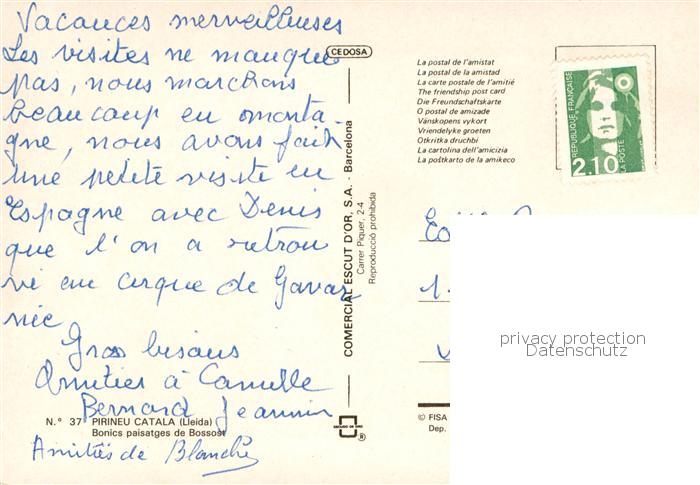 Vacances merveilleuses
Les visites ne manque
pas, nous marchons
beaucoup en monta-
gne, nous avons fait
une petite visite en
Espagne avec Denis
que l'on a retrou
vé au cirque de Gavar
nie
Gros bisous
Amitiés à Camille
Bernard Jeannin
Amitiés de Blanche
N.° 37 PIRINEU CATALA (Lleida)
Bonics paisatges de Bossost
CEDOSA
COMERCIAL ESCUT D'OR, S.A. - Barcelona
Carrer Piquer, 2-4
Reproducció prohibida
ESCUDO DE ORO
®
La postal de l'amistat
La postal de la amistad
La carte postale de l'amitié
The friendship post card
Die Freundschaftskarte
O postal de amizade
Vänskopens vykort
Vriendelyke groeten
Otkritka druchbi
La cartolina dell'amicizia
La poŝtkarto de la amikeco
REPUBLIQUE FRANÇAISE
2.10
LA POSTE
1.
privacy protection
Datenschutz
© FISA
Dep.